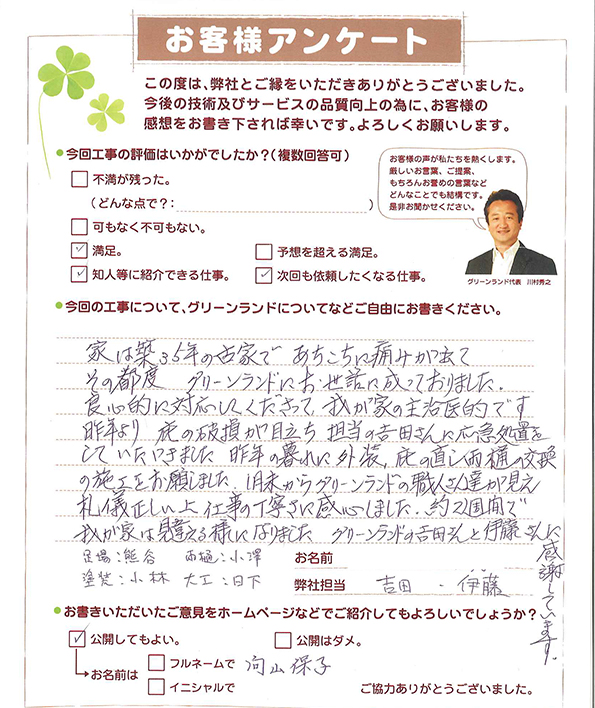 お客様アンケート
この度は、弊社とご縁をいただきありがとうございました。
今後の技術及びサービスの品質向上の為に、お客様の
感想をお書き下されば幸いです。よろしくお願いします。
●今回工事の評価はいかがでしたか?(複数回答可)
□不満が残った。
(どんな点で?: )
□可もなく不可もない。
☑満足。
□予想を超える満足。
☑知人等に紹介できる仕事。
☑次回も依頼したくなる仕事。
お客様の声が私たちを熱くします。
厳しいお言葉、ご提案、
もちろんお誉めの言葉など
どんなことでも結構です。
是非お聞かせください。
グリーンランド代表 川村秀之
●今回の工事について、グリーンランドについてなどご自由にお書きください。
家は築35年の古家で あちこちに痛みが出て
その都度 グリーンランドにお世話に成っておりました.
良心的に対応してくださって 我が家の主治医的です
昨年より 庇の破損が目立ち 担当の吉田さんに応急処置を
していただきました 昨年の暮れに外装、庇の直し雨樋の交換
の施工をお願しました. 1月末からグリーンランドの職人さん達が見え
礼儀正しい上仕事の丁寧さに感心しました. 約2週間で
我が家は見違える様になりました グリーンランドの吉田さんと伊藤さんに
感謝しています。
足場:熊谷 雨樋:小澤
塗装:小林 大工:日下
お名前
弊社担当 吉田 ・ 伊藤
●お書きいただいたご意見をホームページなどでご紹介してもよろしいでしょうか?
☑公開してもよい。
□公開はダメ。
お名前は
□フルネームで 向山保子
□イニシャルで
ご協力ありがとうございました。